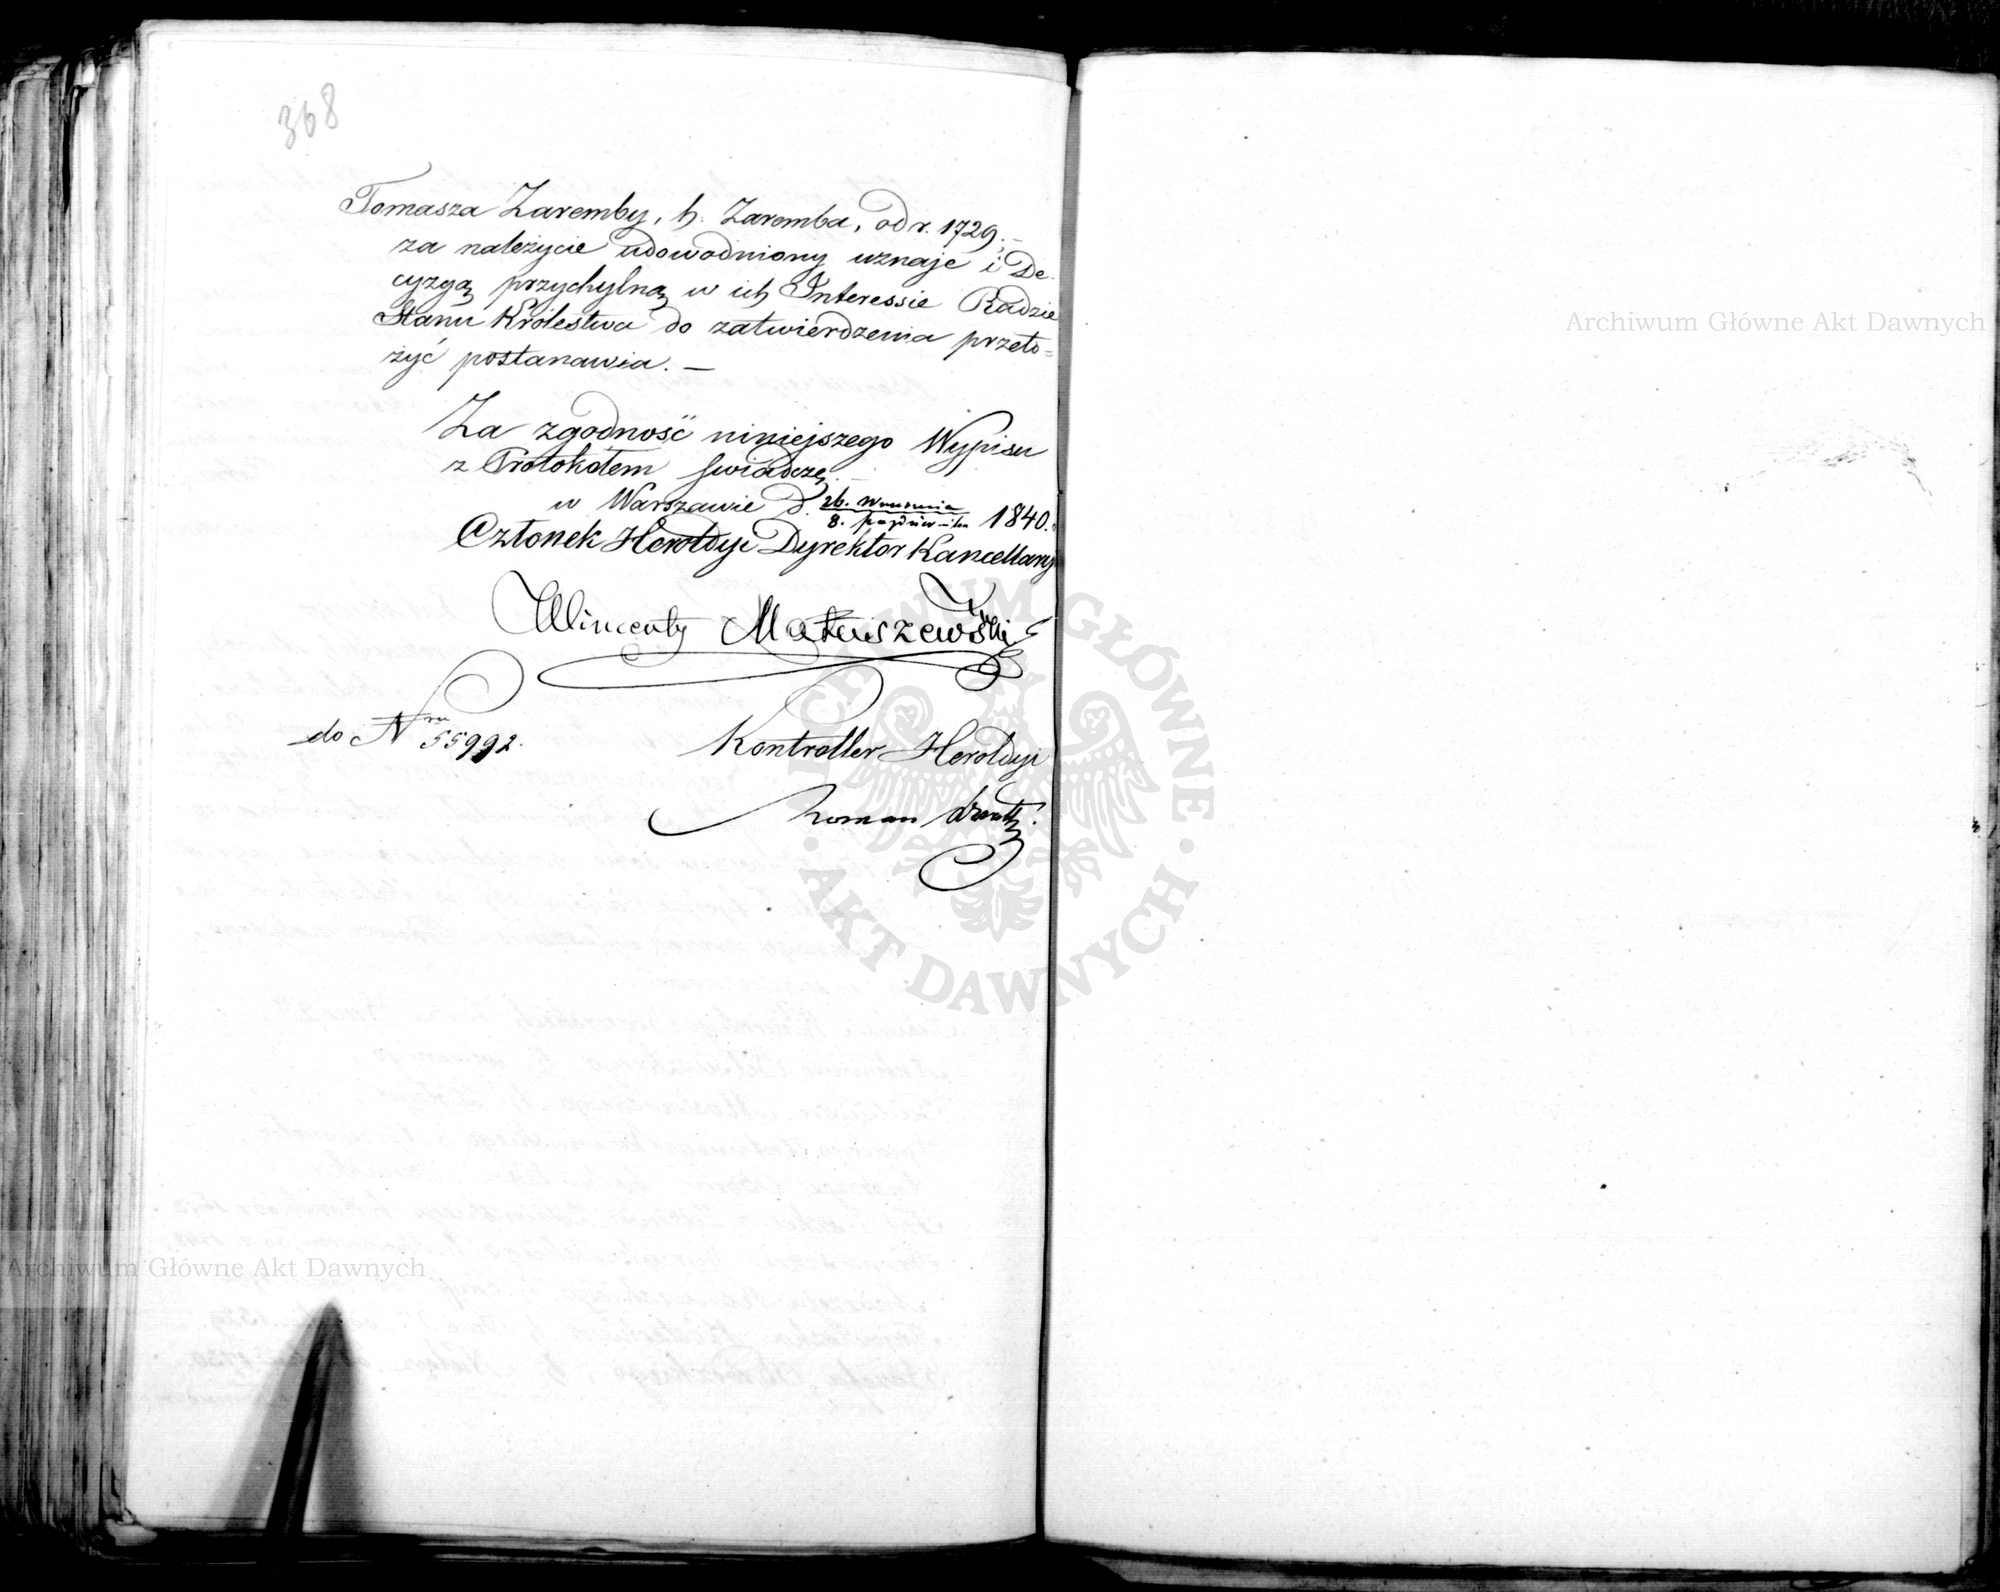 368
Tomasza Zaremby, h. Zaremba, od r. 1729,
za należycie udowodniony uznaje i De-
cyzyą przychylną w ich Interessie Radzie
Stanu Królestwa do zatwierdzenia przeło-
żyć postanawia. —
Za zgodność niniejszego Wypisu
z Protokołem świadczę.
w Warszawie d. 26. Września / 8. październ-ika 1840.
Członek Heroldyi Dyrektor Kancellaryi
Wincenty Matuszewski
do Nru 55992.
Kontroller Heroldyi
Roman
Archiwum Główne Akt Dawnych
ARCHIWUM GŁÓWNE · AKT DAWNYCH ·
Archiwum Główne Akt Dawnych